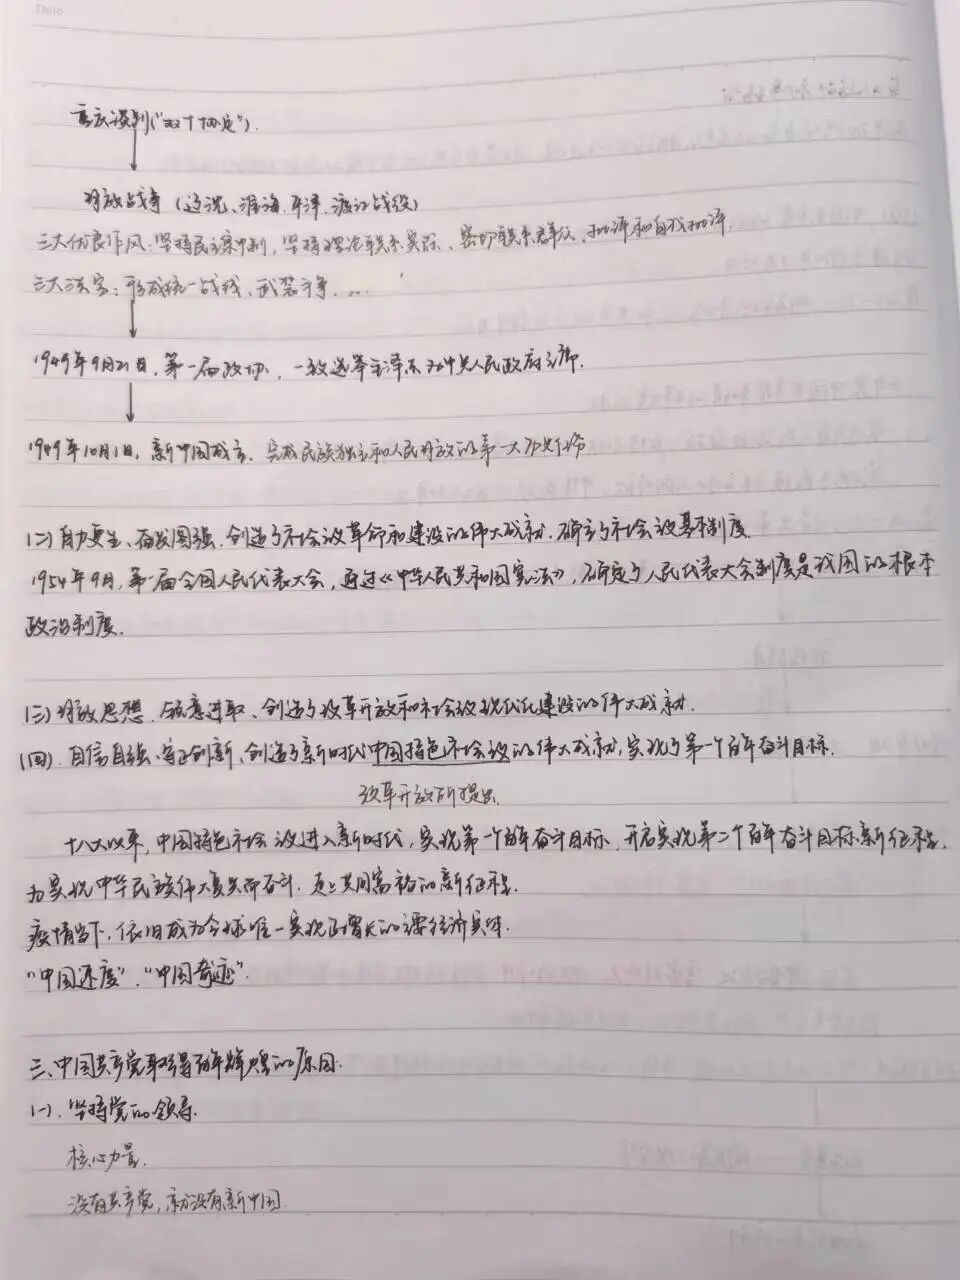 Date
重庆谈判("双十协定").
解放战争 (辽沈、淮海、平津、渡江战役)
三大优良作风:坚持民主集中制, 坚持理论联系实际、密切联系群众、批评和自我批评.
三大法宝: 形成统一战线、武装斗争、...
1949年9月21日, 第一届政协, 一致选举毛泽东为中央人民政府主席.
1949年10月1日, 新中国成立、完成民族独立和人民解放的第一大历史任务
(二) 自力更生、奋发图强、创造了社会主义革命和建设的伟大成就. 确立了社会主义基本制度.
1954年9月, 第一届全国人民代表大会, 通过《中华人民共和国宪法》, 确定了人民代表大会制度是我国的根本
政治制度.
(三) 解放思想、锐意进取、创造了改革开放和社会主义现代化建设的伟大成就.
(四). 自信自强、守正创新、创造了新时代中国特色社会主义的伟大成就, 实现了第一个百年奋斗目标.
改革开放所提出.
十八大以来, 中国特色社会主义进入新时代, 实现第一个百年奋斗目标, 开启实现第二个百年奋斗目标新征程.
为实现中华民族伟大复兴而奋斗. 走上共同富裕的新征程.
疫情当下, 依旧成为全球唯一实现正增长的主要经济实体.
"中国速度". "中国奇迹".
三. 中国共产党取得百年辉煌的原因.
(一). 坚持党的领导.
核心力量.
没有共产党, 就没有新中国.